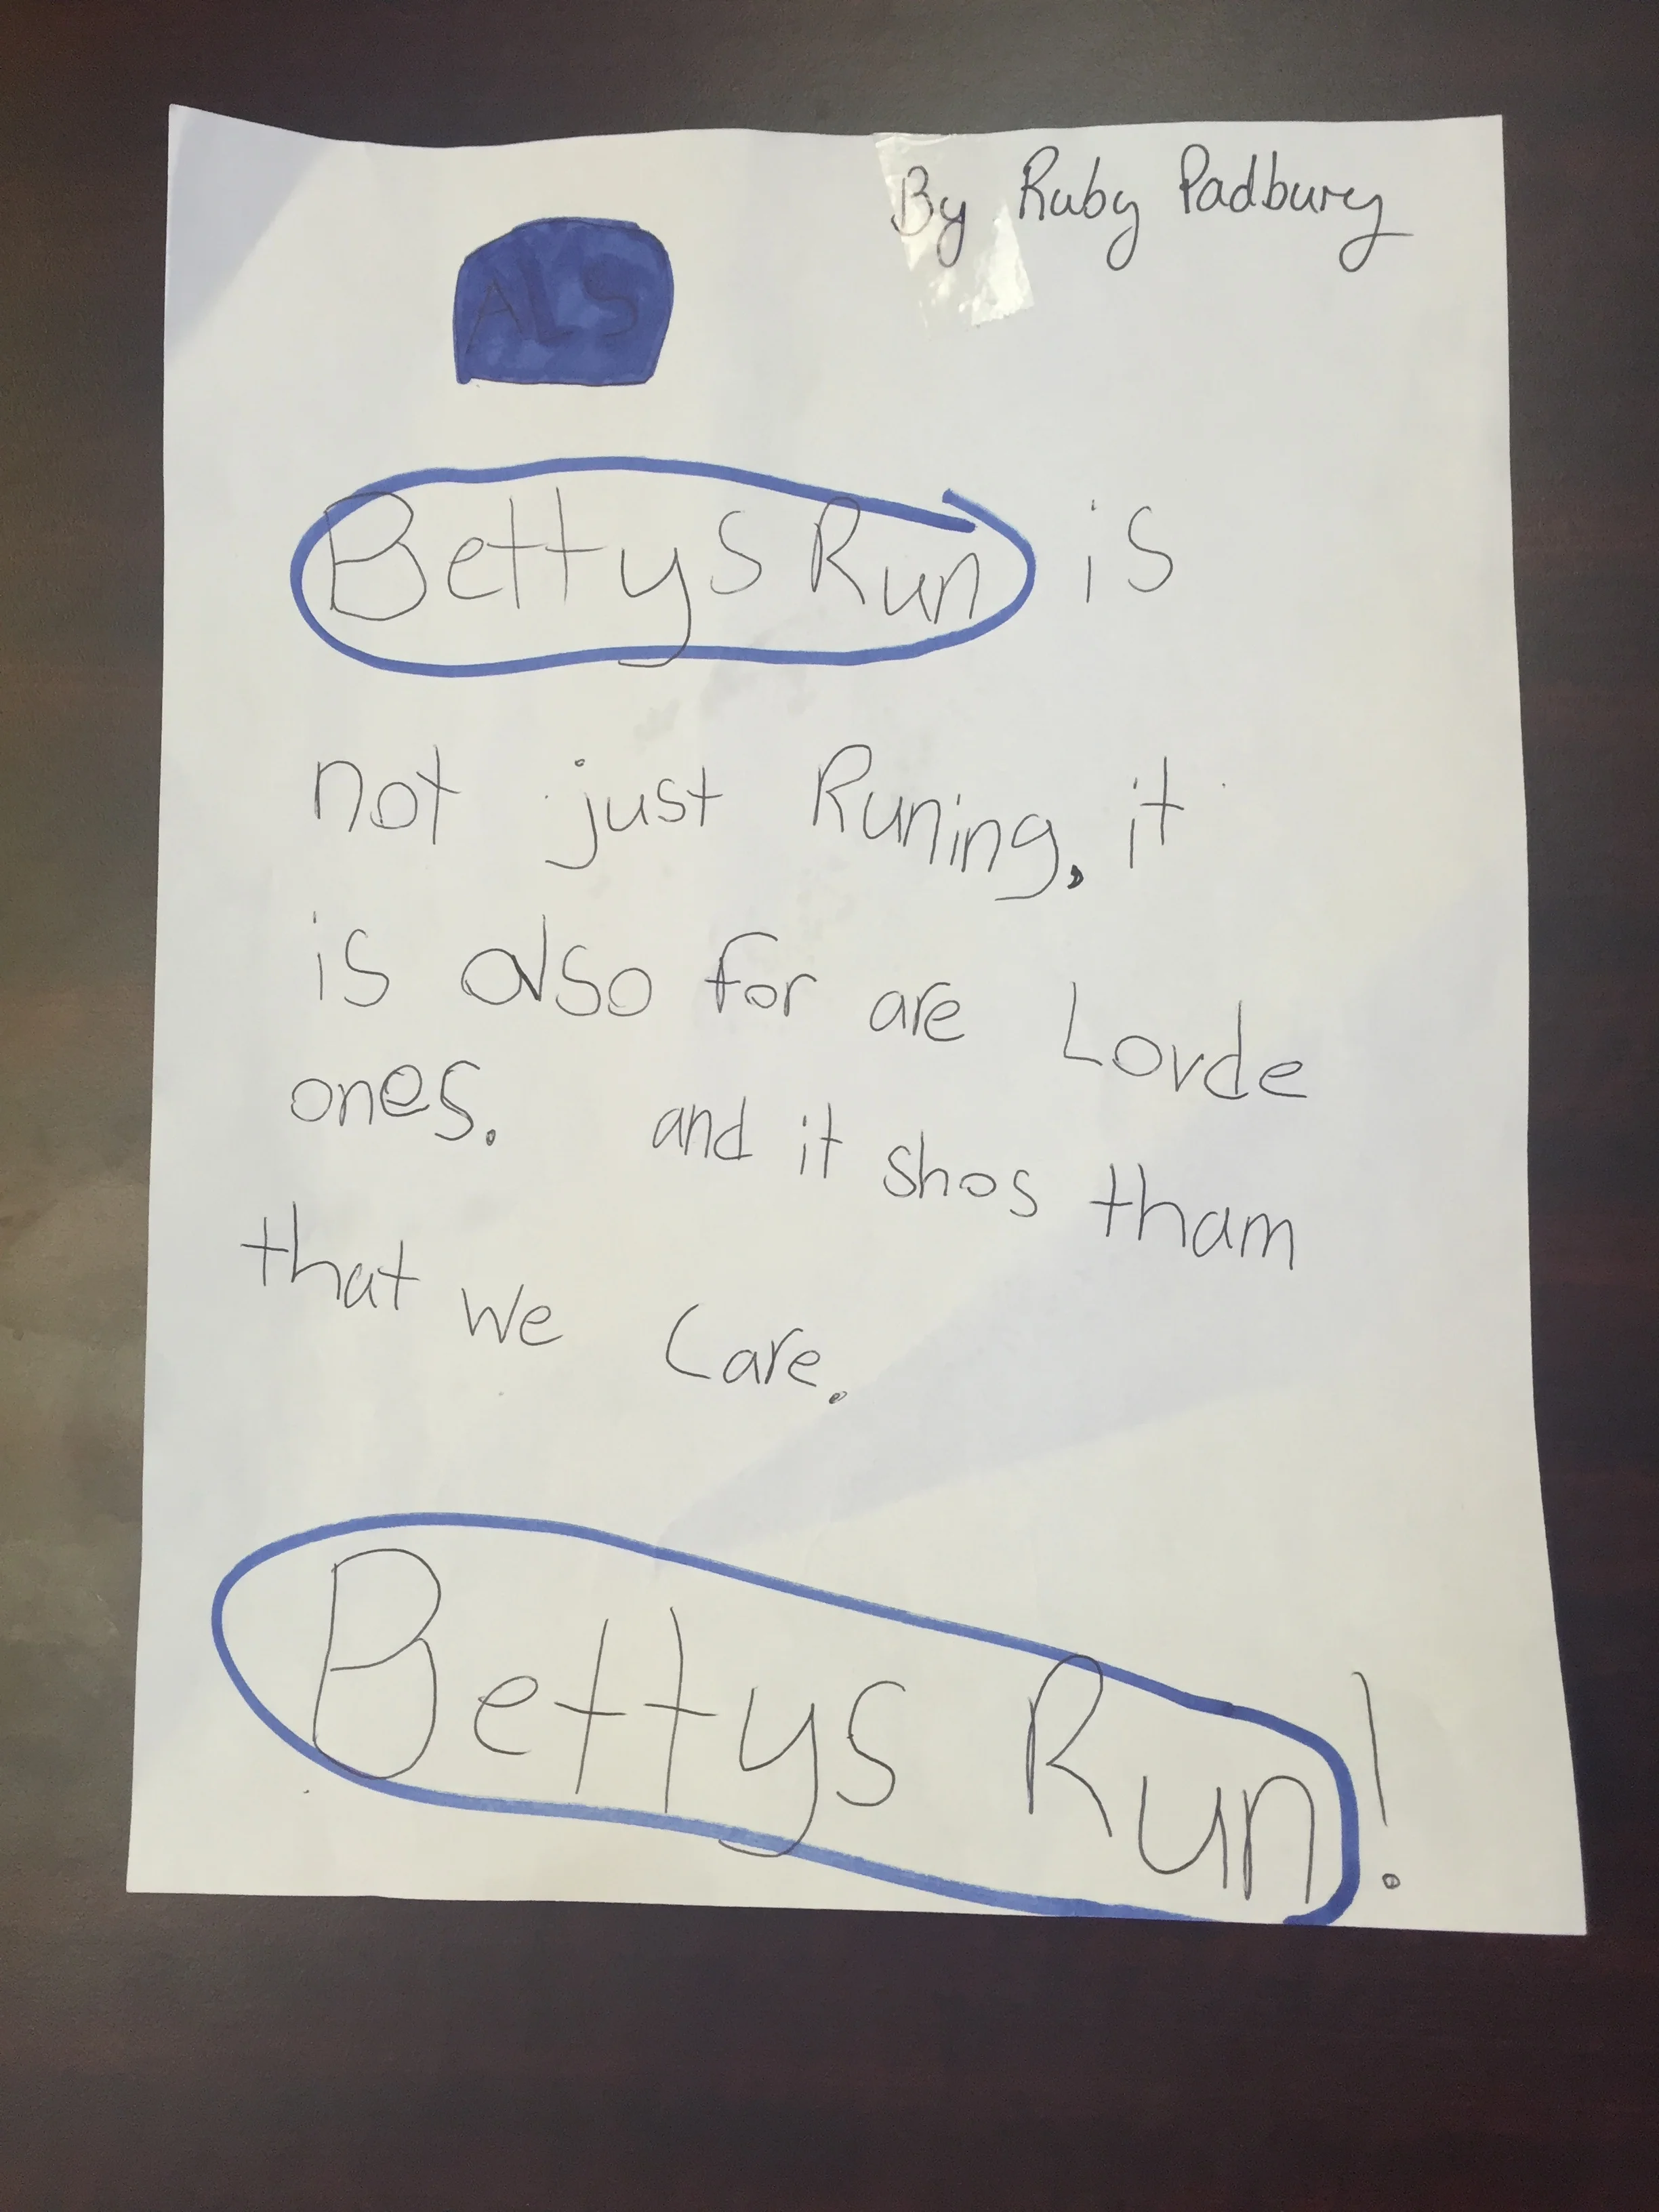 By Ruby Padbury
ALS
Bettys Run is
not just Runing, it
is also for are Lovde
ones. and it shos tham
that we Care.
Bettys Run!